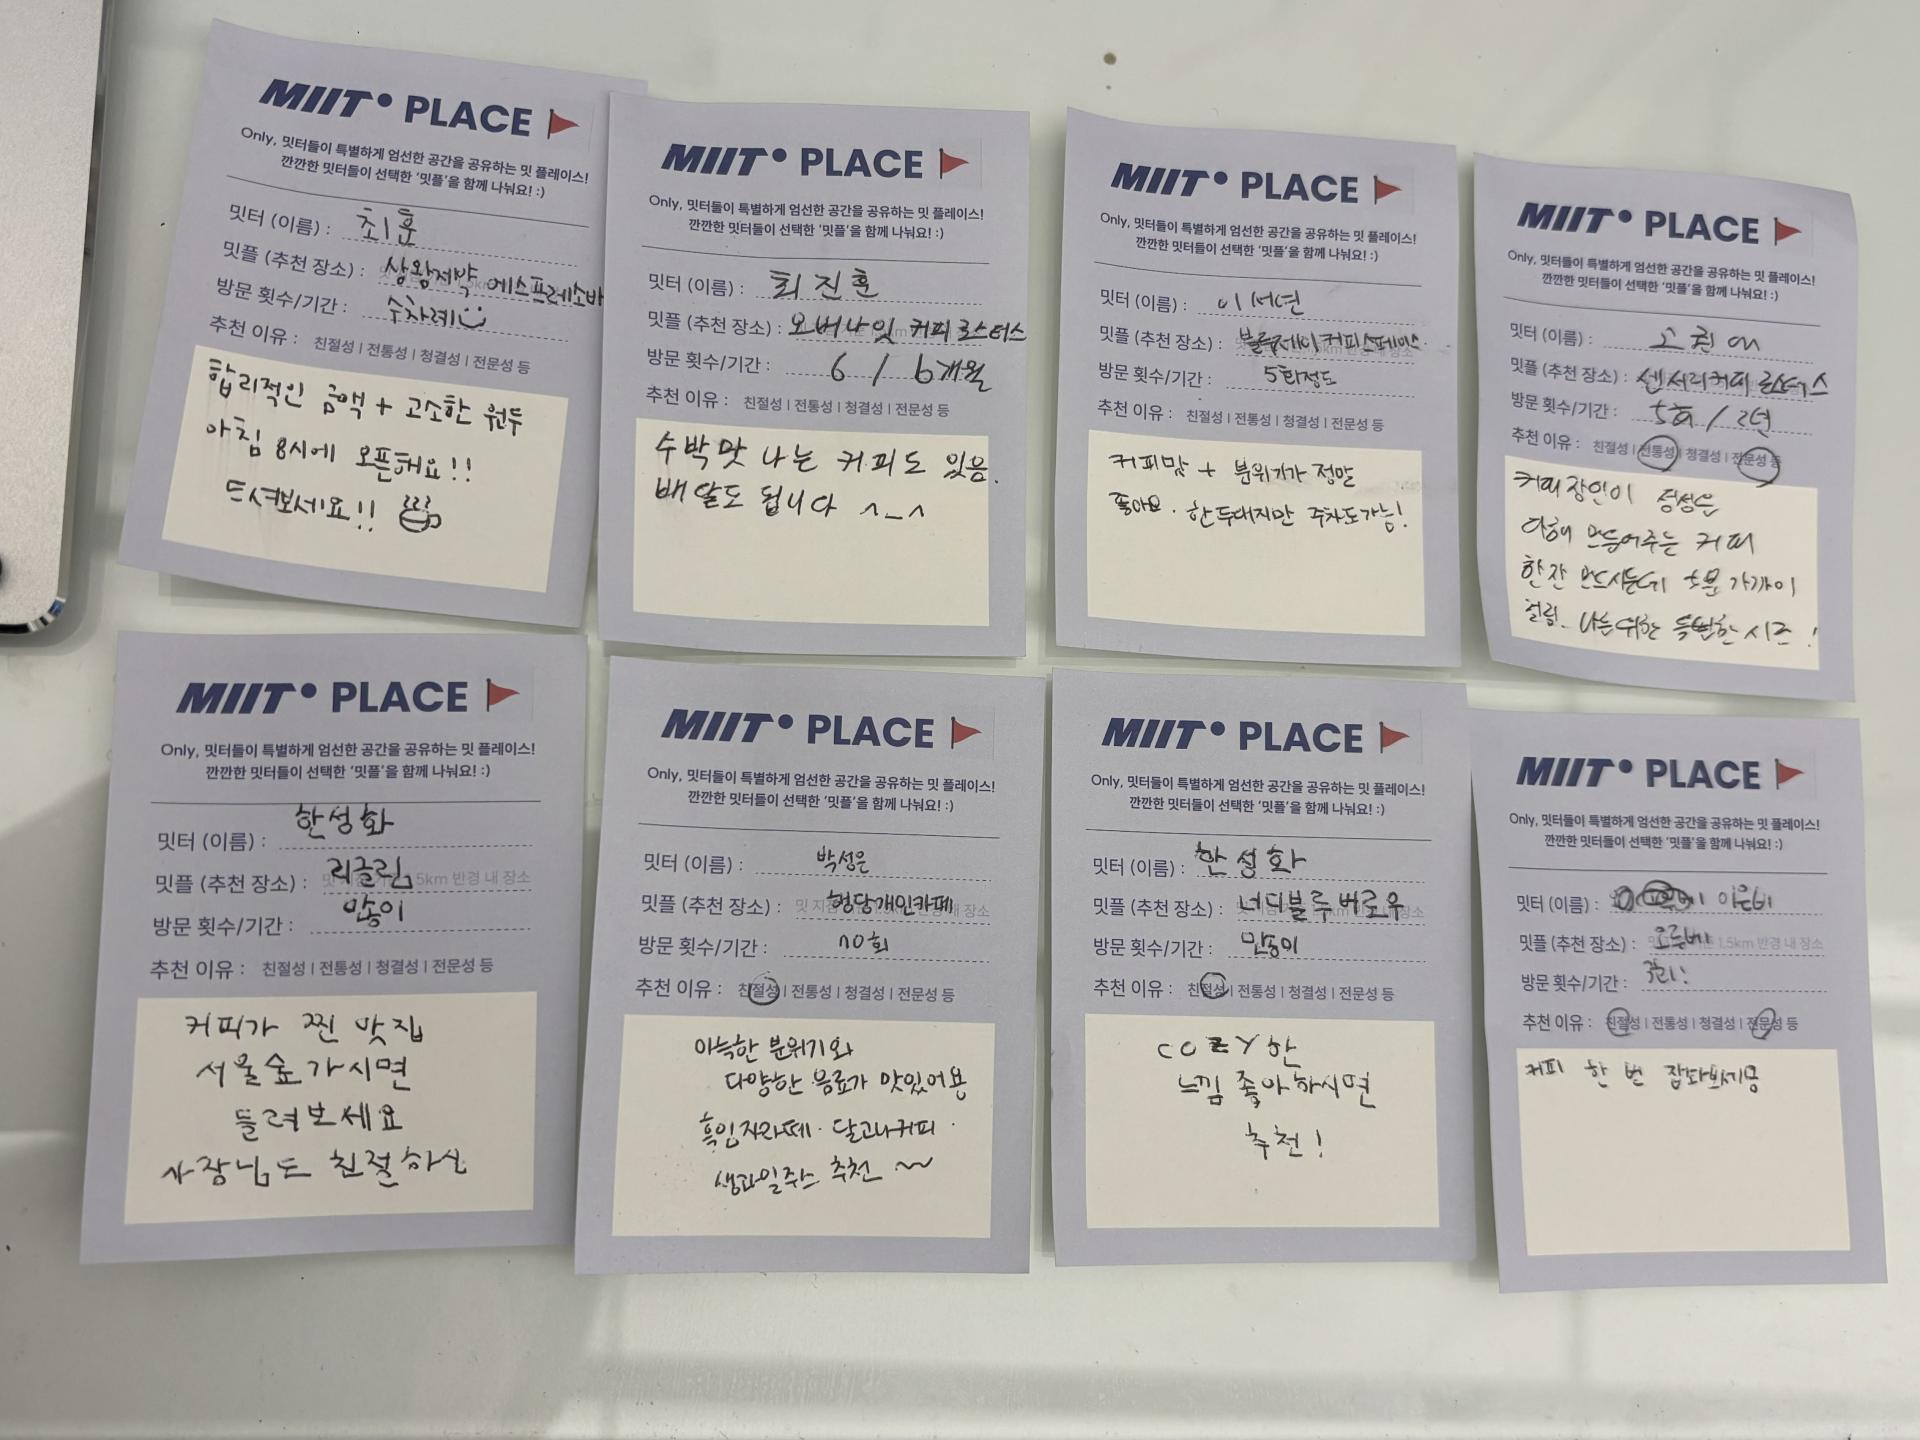 MIIT PLACE
Only, 밋터들이 특별하게 엄선한 공간을 공유하는 밋 플레이스!
깐깐한 밋터들이 선택한 '밋플'을 함께 나눠요! :)
밋터 (이름) : 최훈
밋플 (추천 장소) : 상왕제약 에스프레소바
방문 횟수/기간 : 수차례
추천 이유 : 친절성 | 전통성 | 청결성 | 전문성 등
합리적인 금액 + 고소한 원두
아침 8시에 오픈해요!!
드셔보세요!!
MIIT PLACE
Only, 밋터들이 특별하게 엄선한 공간을 공유하는 밋 플레이스!
깐깐한 밋터들이 선택한 '밋플'을 함께 나눠요! :)
밋터 (이름) : 최진훈
밋플 (추천 장소) : 오버나잇 커피로스터스
방문 횟수/기간 : 6 / 6개월
추천 이유 : 친절성 | 전통성 | 청결성 | 전문성 등
수박맛 나는 커피도 있음.
배달도 됩니다 ^_^
MIIT PLACE
Only, 밋터들이 특별하게 엄선한 공간을 공유하는 밋 플레이스!
깐깐한 밋터들이 선택한 '밋플'을 함께 나눠요! :)
밋터 (이름) : 이서연
밋플 (추천 장소) : 블루제이커피스페이스
방문 횟수/기간 : 5회정도
추천 이유 : 친절성 | 전통성 | 청결성 | 전문성 등
커피맛 + 분위기가 정말
좋아요. 한두대지만 주차도가능!
MIIT PLACE
Only, 밋터들이 특별하게 엄선한 공간을 공유하는 밋 플레이스!
깐깐한 밋터들이 선택한 '밋플'을 함께 나눠요! :)
밋터 (이름) :
밋플 (추천 장소) : 센서리커피 로스터스
방문 횟수/기간 : 5회 / 2년
추천 이유 : 친절성 | 전통성 | 청결성 | 전문성 등
커피장인이 정성은
다해 만들어주는 커피
한잔 만드시는데 5분 가까이
걸림. 나를위한 특별한 시간!
MIIT PLACE
Only, 밋터들이 특별하게 엄선한 공간을 공유하는 밋 플레이스!
깐깐한 밋터들이 선택한 '밋플'을 함께 나눠요! :)
밋터 (이름) : 한성화
밋플 (추천 장소) : 리글림
방문 횟수/기간 : 많이
추천 이유 : 친절성 | 전통성 | 청결성 | 전문성 등
커피가 찐 맛집
서울숲 가시면
들려보세요
사장님도 친절하심
MIIT PLACE
Only, 밋터들이 특별하게 엄선한 공간을 공유하는 밋 플레이스!
깐깐한 밋터들이 선택한 '밋플'을 함께 나눠요! :)
밋터 (이름) : 박성은
밋플 (추천 장소) : 헝당개인카페
방문 횟수/기간 : 10회
추천 이유 : 친절성 | 전통성 | 청결성 | 전문성 등
아늑한 분위기와
다양한 음료가 맛있어용
흑임자라떼. 달고나커피.
생과일주스 추천 ~~
MIIT PLACE
Only, 밋터들이 특별하게 엄선한 공간을 공유하는 밋 플레이스!
깐깐한 밋터들이 선택한 '밋플'을 함께 나눠요! :)
밋터 (이름) : 한성화
밋플 (추천 장소) : 너디블루버로우
방문 횟수/기간 : 많이
추천 이유 : 친절성 | 전통성 | 청결성 | 전문성 등
COZY한
느낌 좋아하시면
추천!
MIIT PLACE
Only, 밋터들이 특별하게 엄선한 공간을 공유하는 밋 플레이스!
깐깐한 밋터들이 선택한 '밋플'을 함께 나눠요! :)
밋터 (이름) : 이은비
밋플 (추천 장소) : 오르베
방문 횟수/기간 :
추천 이유 : 친절성 | 전통성 | 청결성 | 전문성 등
커피 한 번 잡솨보세용